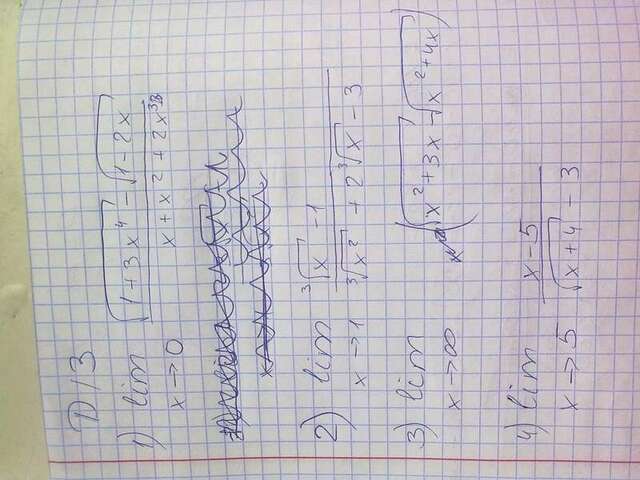 D/3
1) lim x→0 (√(1+3x⁴) − √(1−2x)) / (x + x² + 2x³)
2) lim x→1 (∛x − 1) / (∛x² + 2∛x − 3)
3) lim x→∞ (√(x²+3x) − √(x²+4x))
4) lim x→5 (x−5) / (√(x+4) − 3)